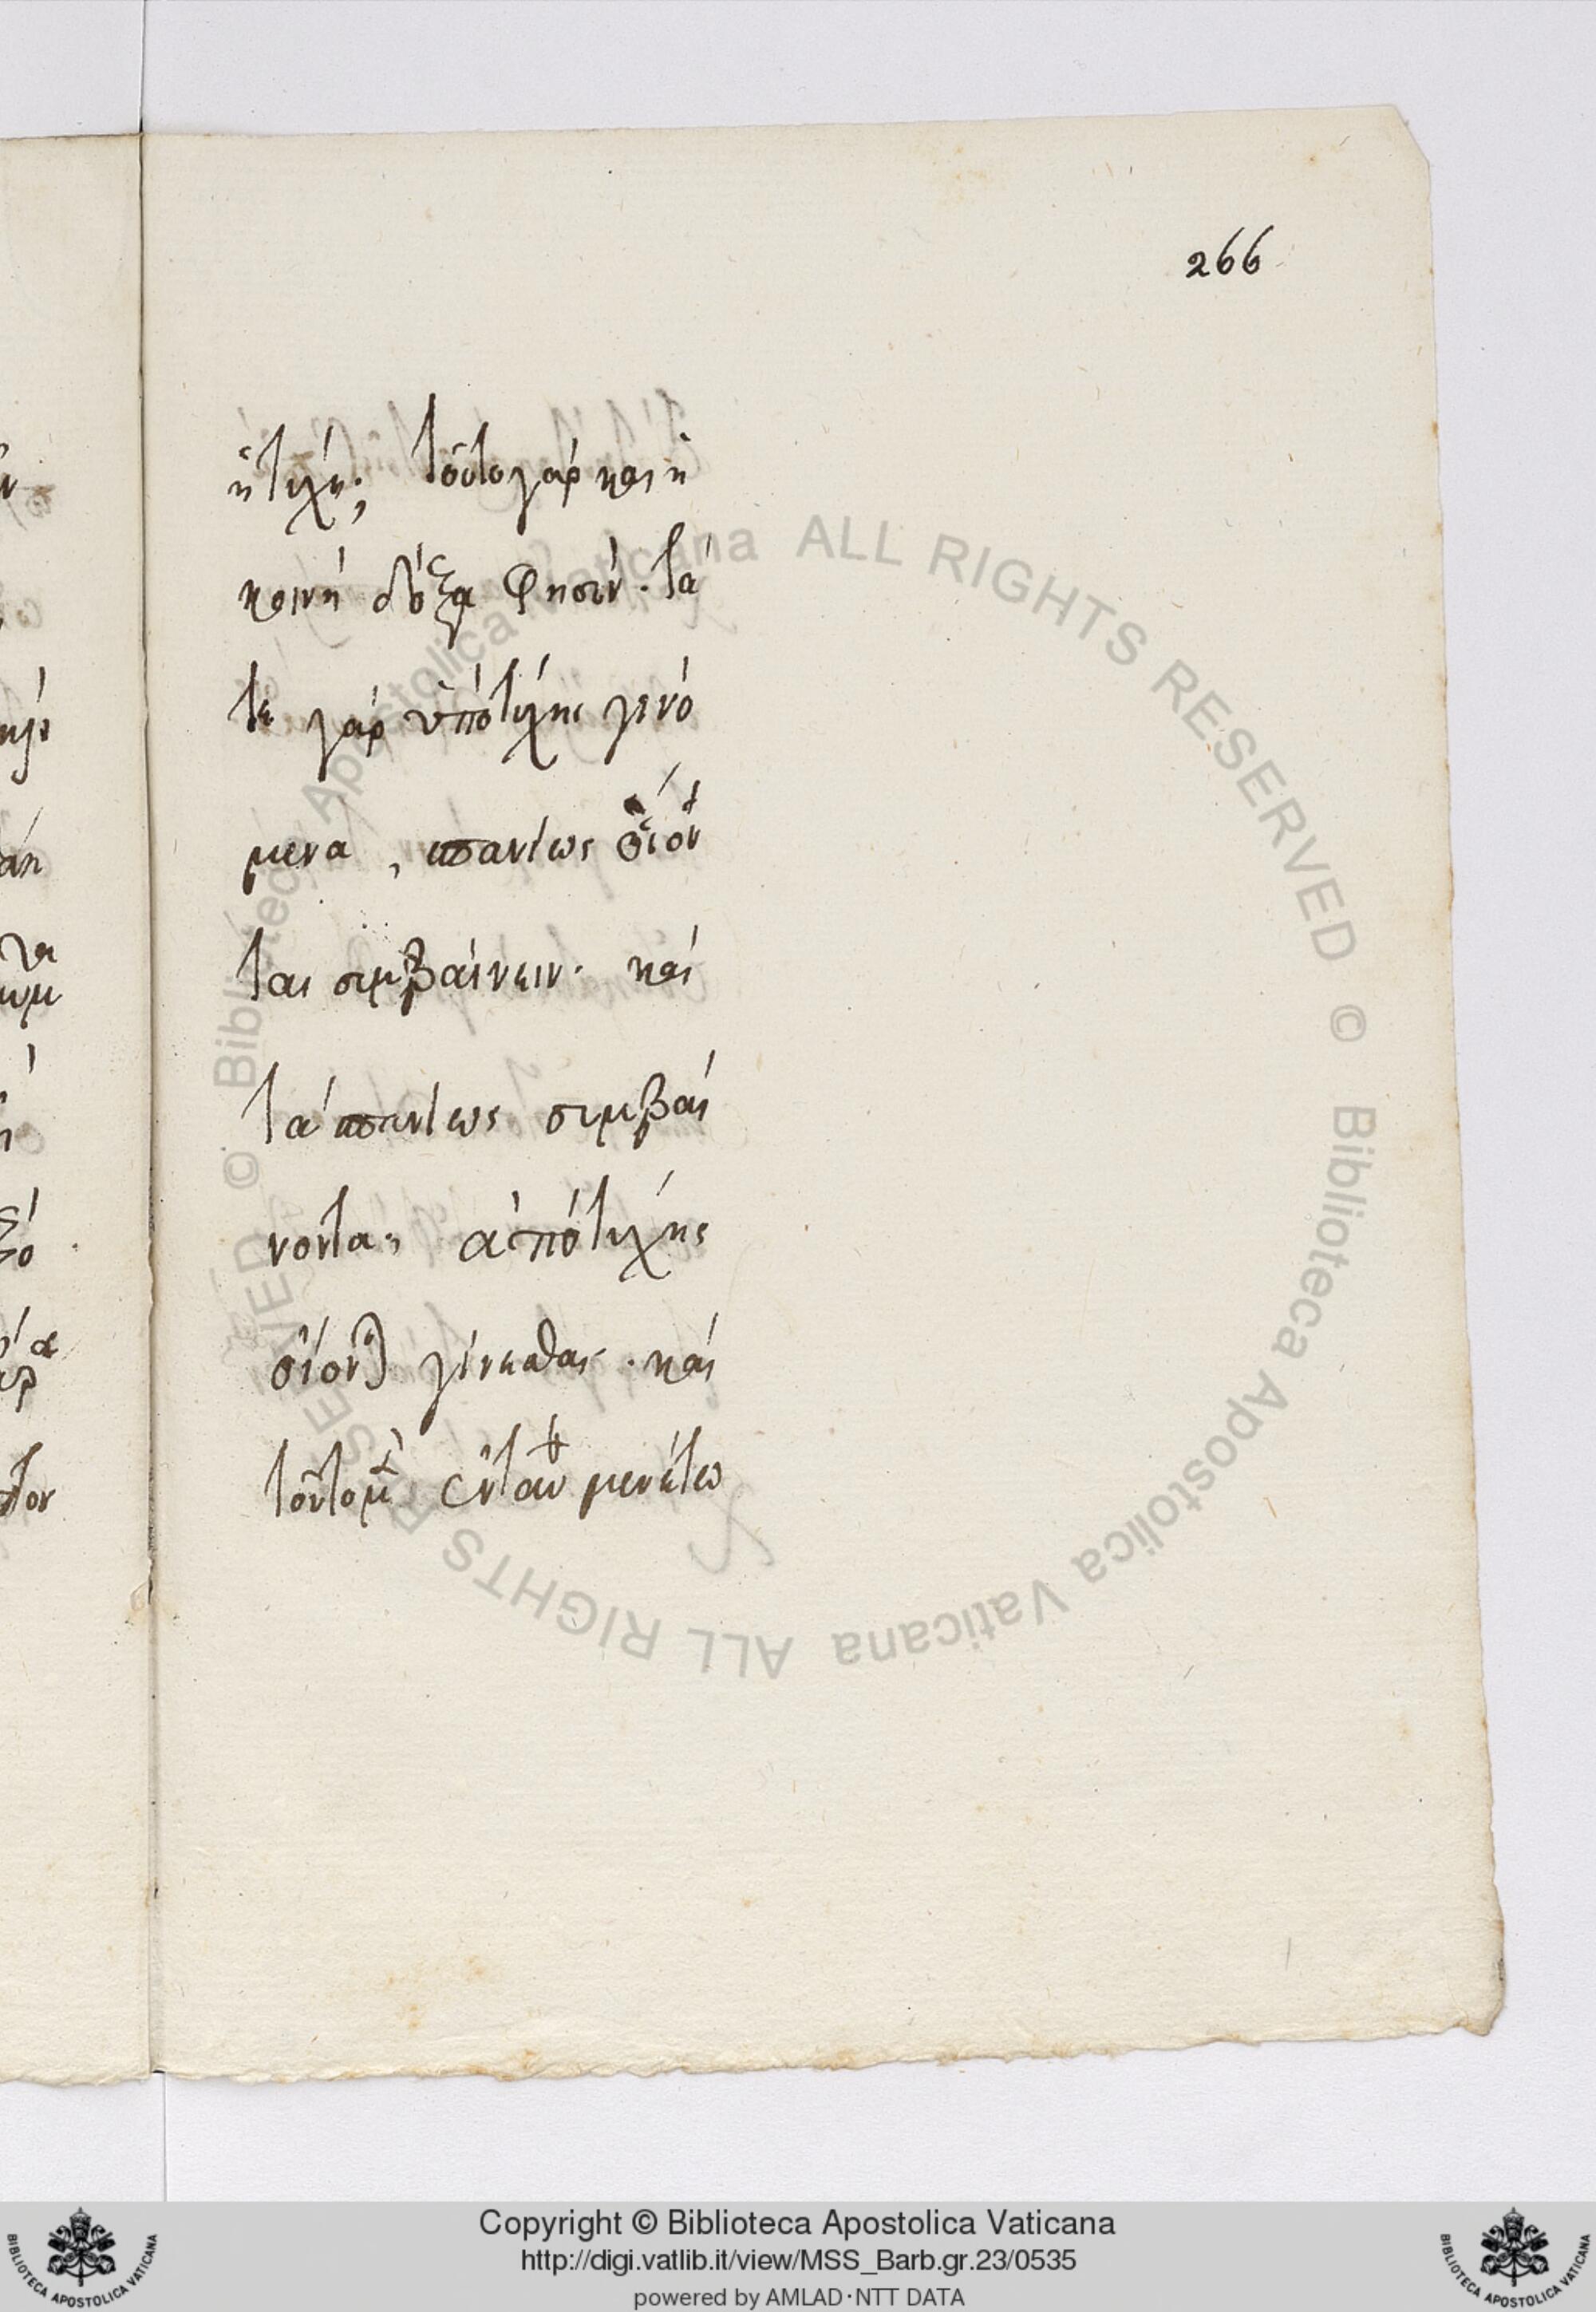 266
ἡ τύχη; τοῦτο γὰρ καὶ ἡ
κοινὴ δόξα φησίν· τά
τε γὰρ ὑπὸ τύχης γενό
μενα, σπανίως οἴον
ται συμβαίνειν· καὶ
τὰ σπανίως συμβαί
νοντα, ἀπὸ τύχης
οἴονται γίνεσθαι· καὶ
τοῦτο μὲν ἐνταῦθα μενέτω
© Biblioteca Apostolica Vaticana ALL RIGHTS RESERVED © Biblioteca Apostolica Vaticana ALL RIGHTS RESERVED
Copyright © Biblioteca Apostolica Vaticana
http://digi.vatlib.it/view/MSS_Barb.gr.23/0535
powered by AMLAD·NTT DATA
BIBLIOTECA APOSTOLICA VATICANA
BIBLIOTECA APOSTOLICA VATICANA